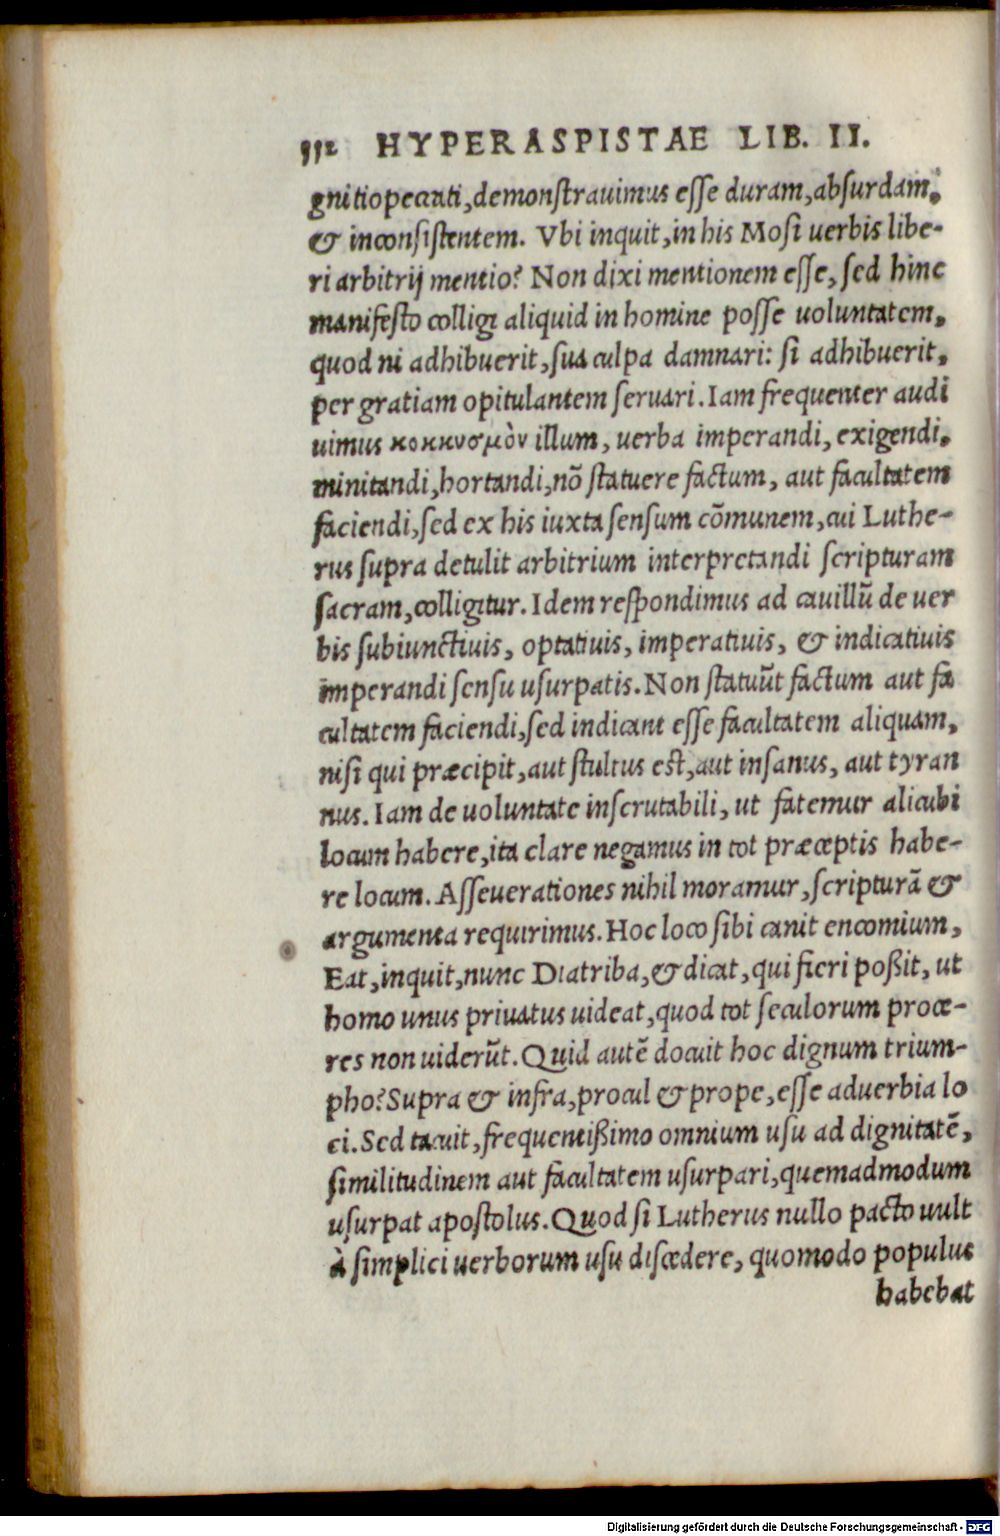 552 HYPERASPISTAE LIB. II.
gnitio peccati, demonstrauimus esse duram, absurdam,
& inconsistentem. Vbi inquit, in his Mosi uerbis libe-
ri arbitrij mentio? Non dixi mentionem esse, sed hinc
manifesto colligi aliquid in homine posse uoluntatem,
quod ni adhibuerit, sua culpa damnari: si adhibuerit,
per gratiam opitulantem seruari. Iam frequenter audi
uimus κοκκυσμὸν illum, uerba imperandi, exigendi,
minitandi, hortandi, nō statuere factum, aut facultatem
faciendi, sed ex his iuxta sensum cōmunem, cui Luthe-
rus supra detulit arbitrium interpretandi scripturam
sacram, colligitur. Idem respondimus ad cauillū de uer
bis subiunctiuis, optatiuis, imperatiuis, & indicatiuis
imperandi sensu usurpatis. Non statuūt factum aut fa
cultatem faciendi, sed indicant esse facultatem aliquam,
nisi qui præcipit, aut stultus est, aut insanus, aut tyran
nus. Iam de uoluntate inscrutabili, ut fatemur alicubi
locum habere, ita clare negamus in tot præceptis habe-
re locum. Asseuerationes nihil moramur, scripturā &
argumenta requirimus. Hoc loco sibi canit encomium,
Eat, inquit, nunc Diatriba, & dicat, qui fieri poßit, ut
homo unus priuatus uideat, quod tot seculorum proce-
res non uiderūt. Quid autē docuit hoc dignum trium-
pho? Supra & infra, procul & prope, esse aduerbia lo
ci. Sed tacuit, frequentißimo omnium usu ad dignitatē,
similitudinem aut facultatem usurpari, quemadmodum
usurpat apostolus. Quod si Lutherus nullo pacto uult
à simplici uerborum usu discedere, quomodo populus
habebat
Digitalisierung gefördert durch die Deutsche Forschungsgemeinschaft - DFG